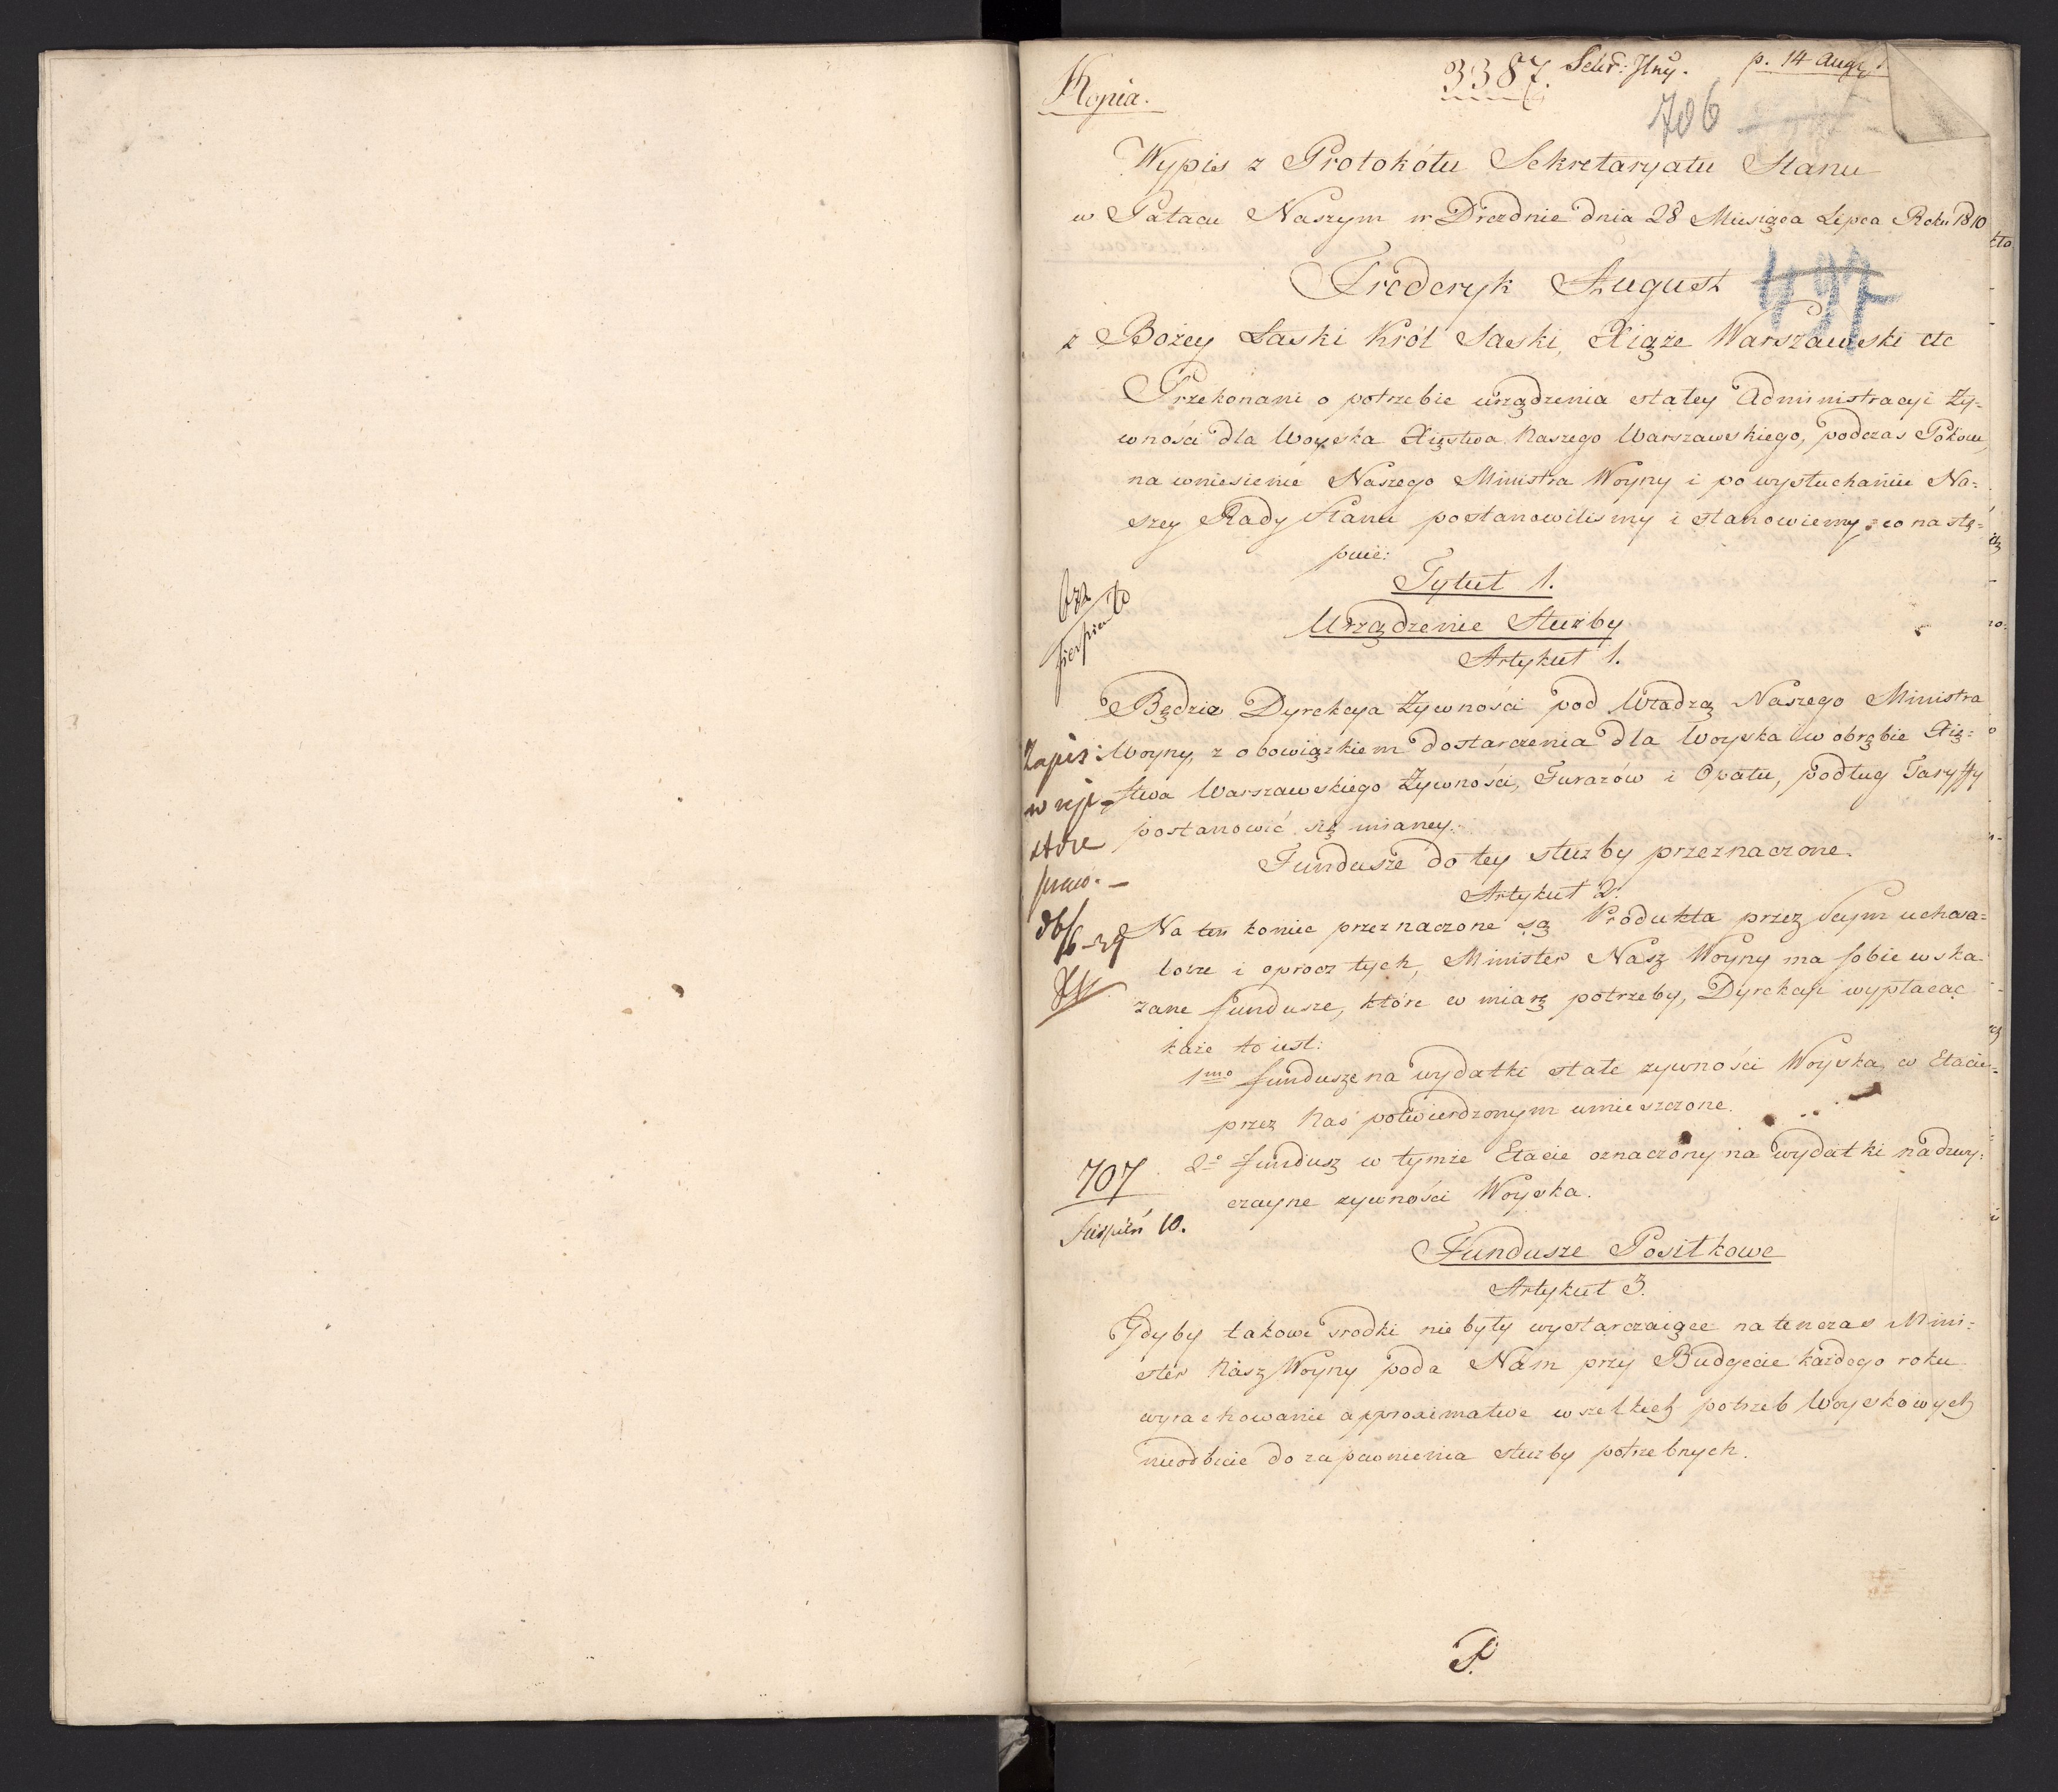 Kopia.
3387. p. 14 Aug
706
Wypis z Protokółu Sekretaryatu Stanu
w Pałacu Naszym w Dreznie dnia 28 Miesiąca Lipca Roku 1810
Frederyk August
497
z Bożey Łaski Król Saski, Xiąże Warszawski etc
Przekonani o potrzebie urządzenia stałey Administracyi Ży-
wności dla Woyska Xięstwa Naszego Warszawskiego, podczas Pokoiu,
na wniesienie Naszego Ministra Woyny i po wysłuchaniu Na-
szey Rady Stanu postanowiliśmy i stanowiemy co nastę-
puie:
Tytuł 1.
Urządzenie Służby
Artykuł 1.
Będzie Dyrekcya Żywności pod Władzą Naszego Ministra
Woyny, z obowiązkiem dostarczenia dla Woyska w obrębie Xię-
stwa Warszawskiego Żywności, Furażów i Opału, podług Taryffy
postanowić się mianey.
Fundusze do tey służby przeznaczone.
Artykuł 2.
Na ten koniec przeznaczone są Produkta przez Seym uchwa-
lone i oprocz tych, Minister Nasz Woyny ma sobie wska
zane fundusze, które w miarę potrzeby, Dyrekcyi wypłacać
każe to iest:
1mo fundusze na wydatki stałe żywności Woyska, w Etacie
przez Nas potwierdzonym umieszczone.
2o fundusz w tymże Etacie oznaczony na wydatki nadzwy-
czayne żywności Woyska.
Fundusze Posiłkowe
Artykuł 3.
Gdyby takowe srodki nie były wystarczaiące natenczas Mini-
ster Nasz Woyny poda Nam przy Budgecie każdego roku
wyrachowanie approximatwe wszelkich potrzeb Woyskowych
nieodbicie do zapewnienia służby potrzebnych.
Zapis:
w reje-
strze
707
Sierpień 10.